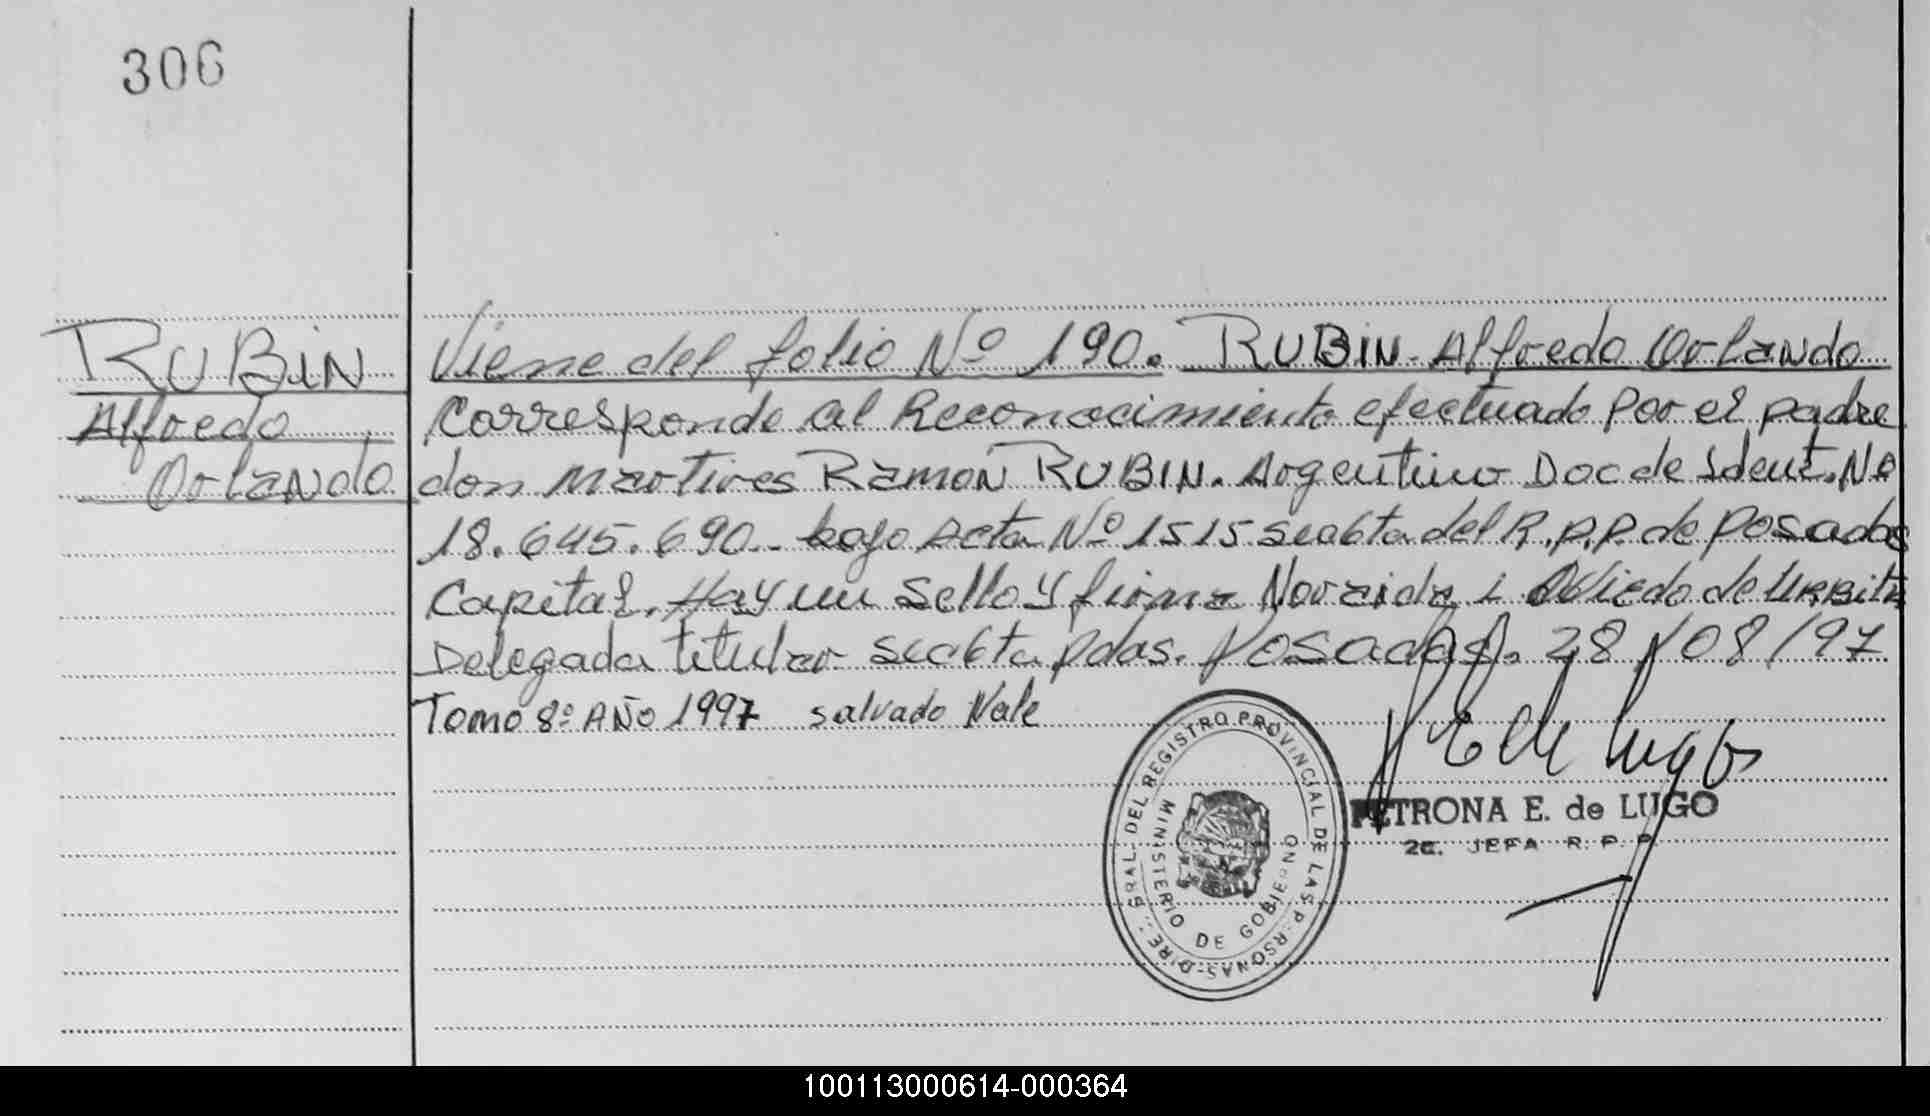 306
RUBIN
Alfredo
Orlando
Viene del folio Nº 190. RUBIN. Alfredo Orlando
Corresponde al Reconocimiento efectuado por el padre
don Martires Ramón RUBIN. Argentino Doc de Ident. Nº
18.645.690.- bajo Acta Nº 1515 Scc 6ta del R.P.P. de Posadas
Capital. Hay un Sello y firma Noraida i Oviedo de
Delegada titular Scc 6ta Pdas. Posadas. 28/08/97
Tomo 8º AÑO 1997 salvado Vale
DIRE. GRAL. DEL REGISTRO PROVINCIAL DE LAS PERSONAS
MINISTERIO DE GOBIERNO
P E de Lugo
PETRONA E. de LUGO
2a. JEFA R. P. P.
100113000614-000364